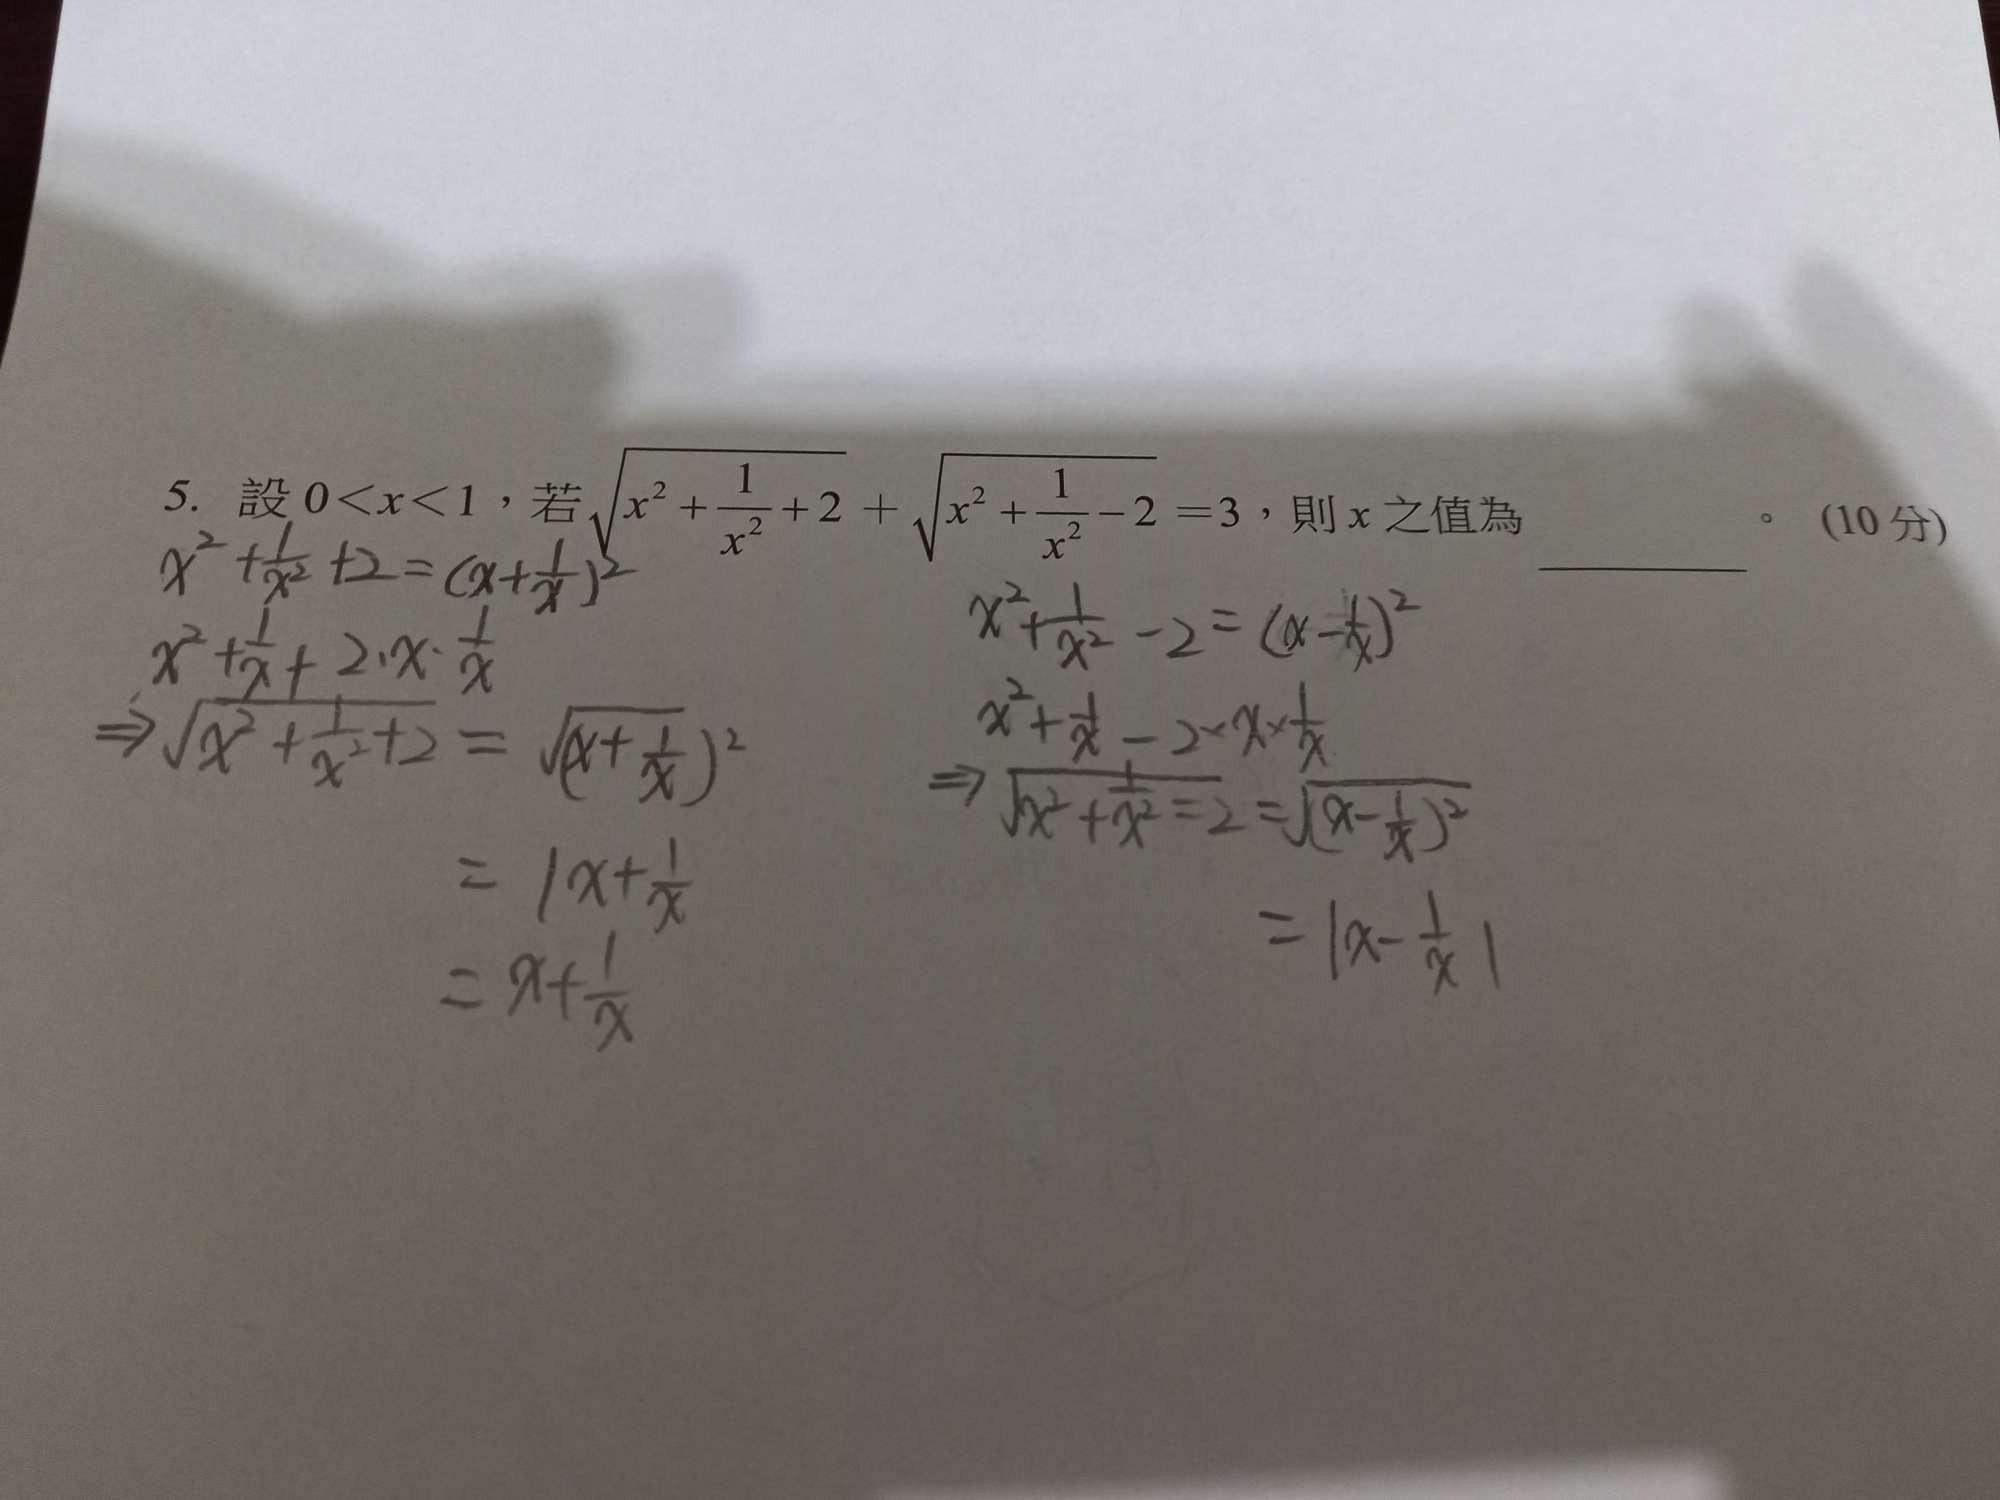 5. 設 0<x<1，若√(x²+1/x²+2) + √(x²+1/x²-2) =3，則 x 之值為______。 (10 分)
x²+1/x²+2=(x+1/x)²
x²+1/x+2·x·1/x
⇒√(x²+1/x²+2) = √(x+1/x)²
= |x+1/x
= x+1/x
x²+1/x²-2=(x-1/x)²
x²+1/x-2×x×1/x
⇒√(x²+1/x²=2)=√((x-1/x)²)
=|x-1/x|